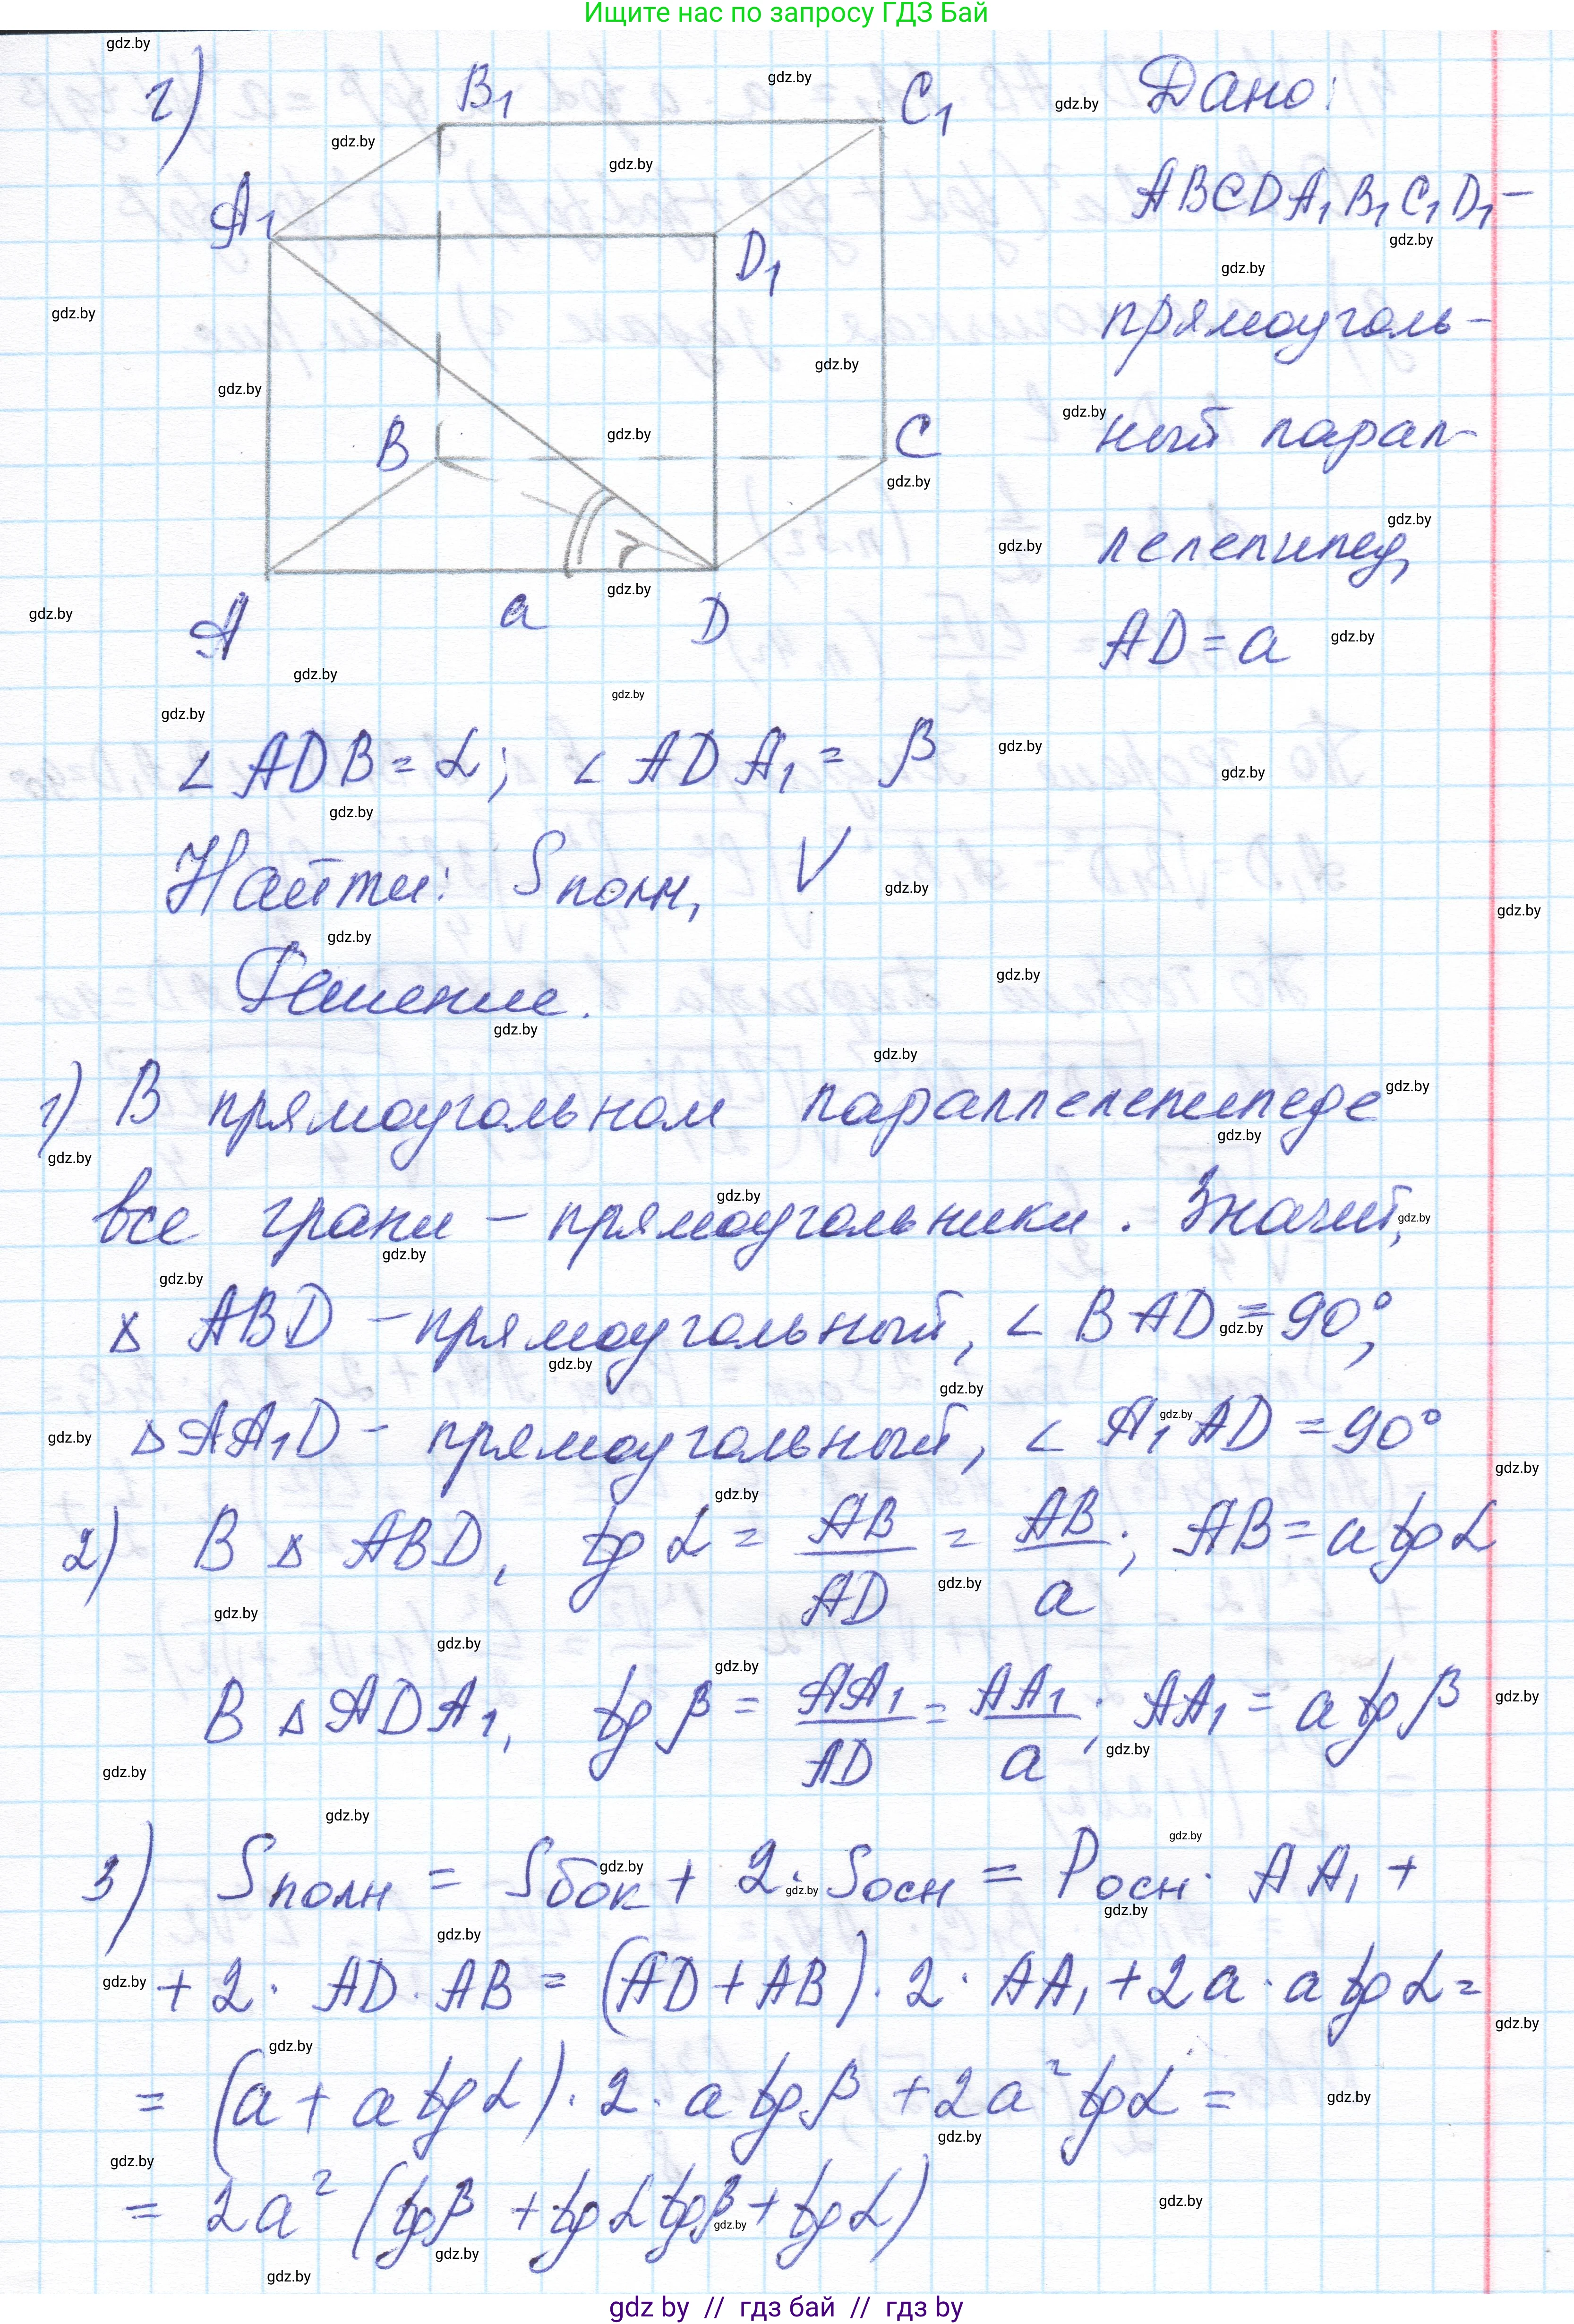 Ищите нас по запросу ГДЗ Бай
г)
B₁
C₁
A₁
D₁
B
C
A
a
D
Дано:
ABCDA₁B₁C₁D₁ –
прямоуголь-
ный парал-
лелепипед,
AD = a
∠ ADB = α; ∠ ADA₁ = β
Найти: Sполн, V
Решение.
1) В прямоугольном параллелепипеде
все грани – прямоугольники. Значит,
△ ABD – прямоугольный, ∠ BAD = 90°,
△ AA₁D – прямоугольный, ∠ A₁AD = 90°
2) В △ ABD, tg α = AB/AD = AB/a; AB = a tg α
В △ ADA₁, tg β = AA₁/AD = AA₁/a; AA₁ = a tg β
3) Sполн = Sбок + 2 · Sосн = Pосн · AA₁ +
+ 2 · AD · AB = (AD + AB) · 2 · AA₁ + 2a · a tg α =
= (a + a tg α) · 2 · a tg β + 2a² tg α =
= 2a² (tg β + tg α tg β + tg α)
gdz by // гдз бай // гдз by